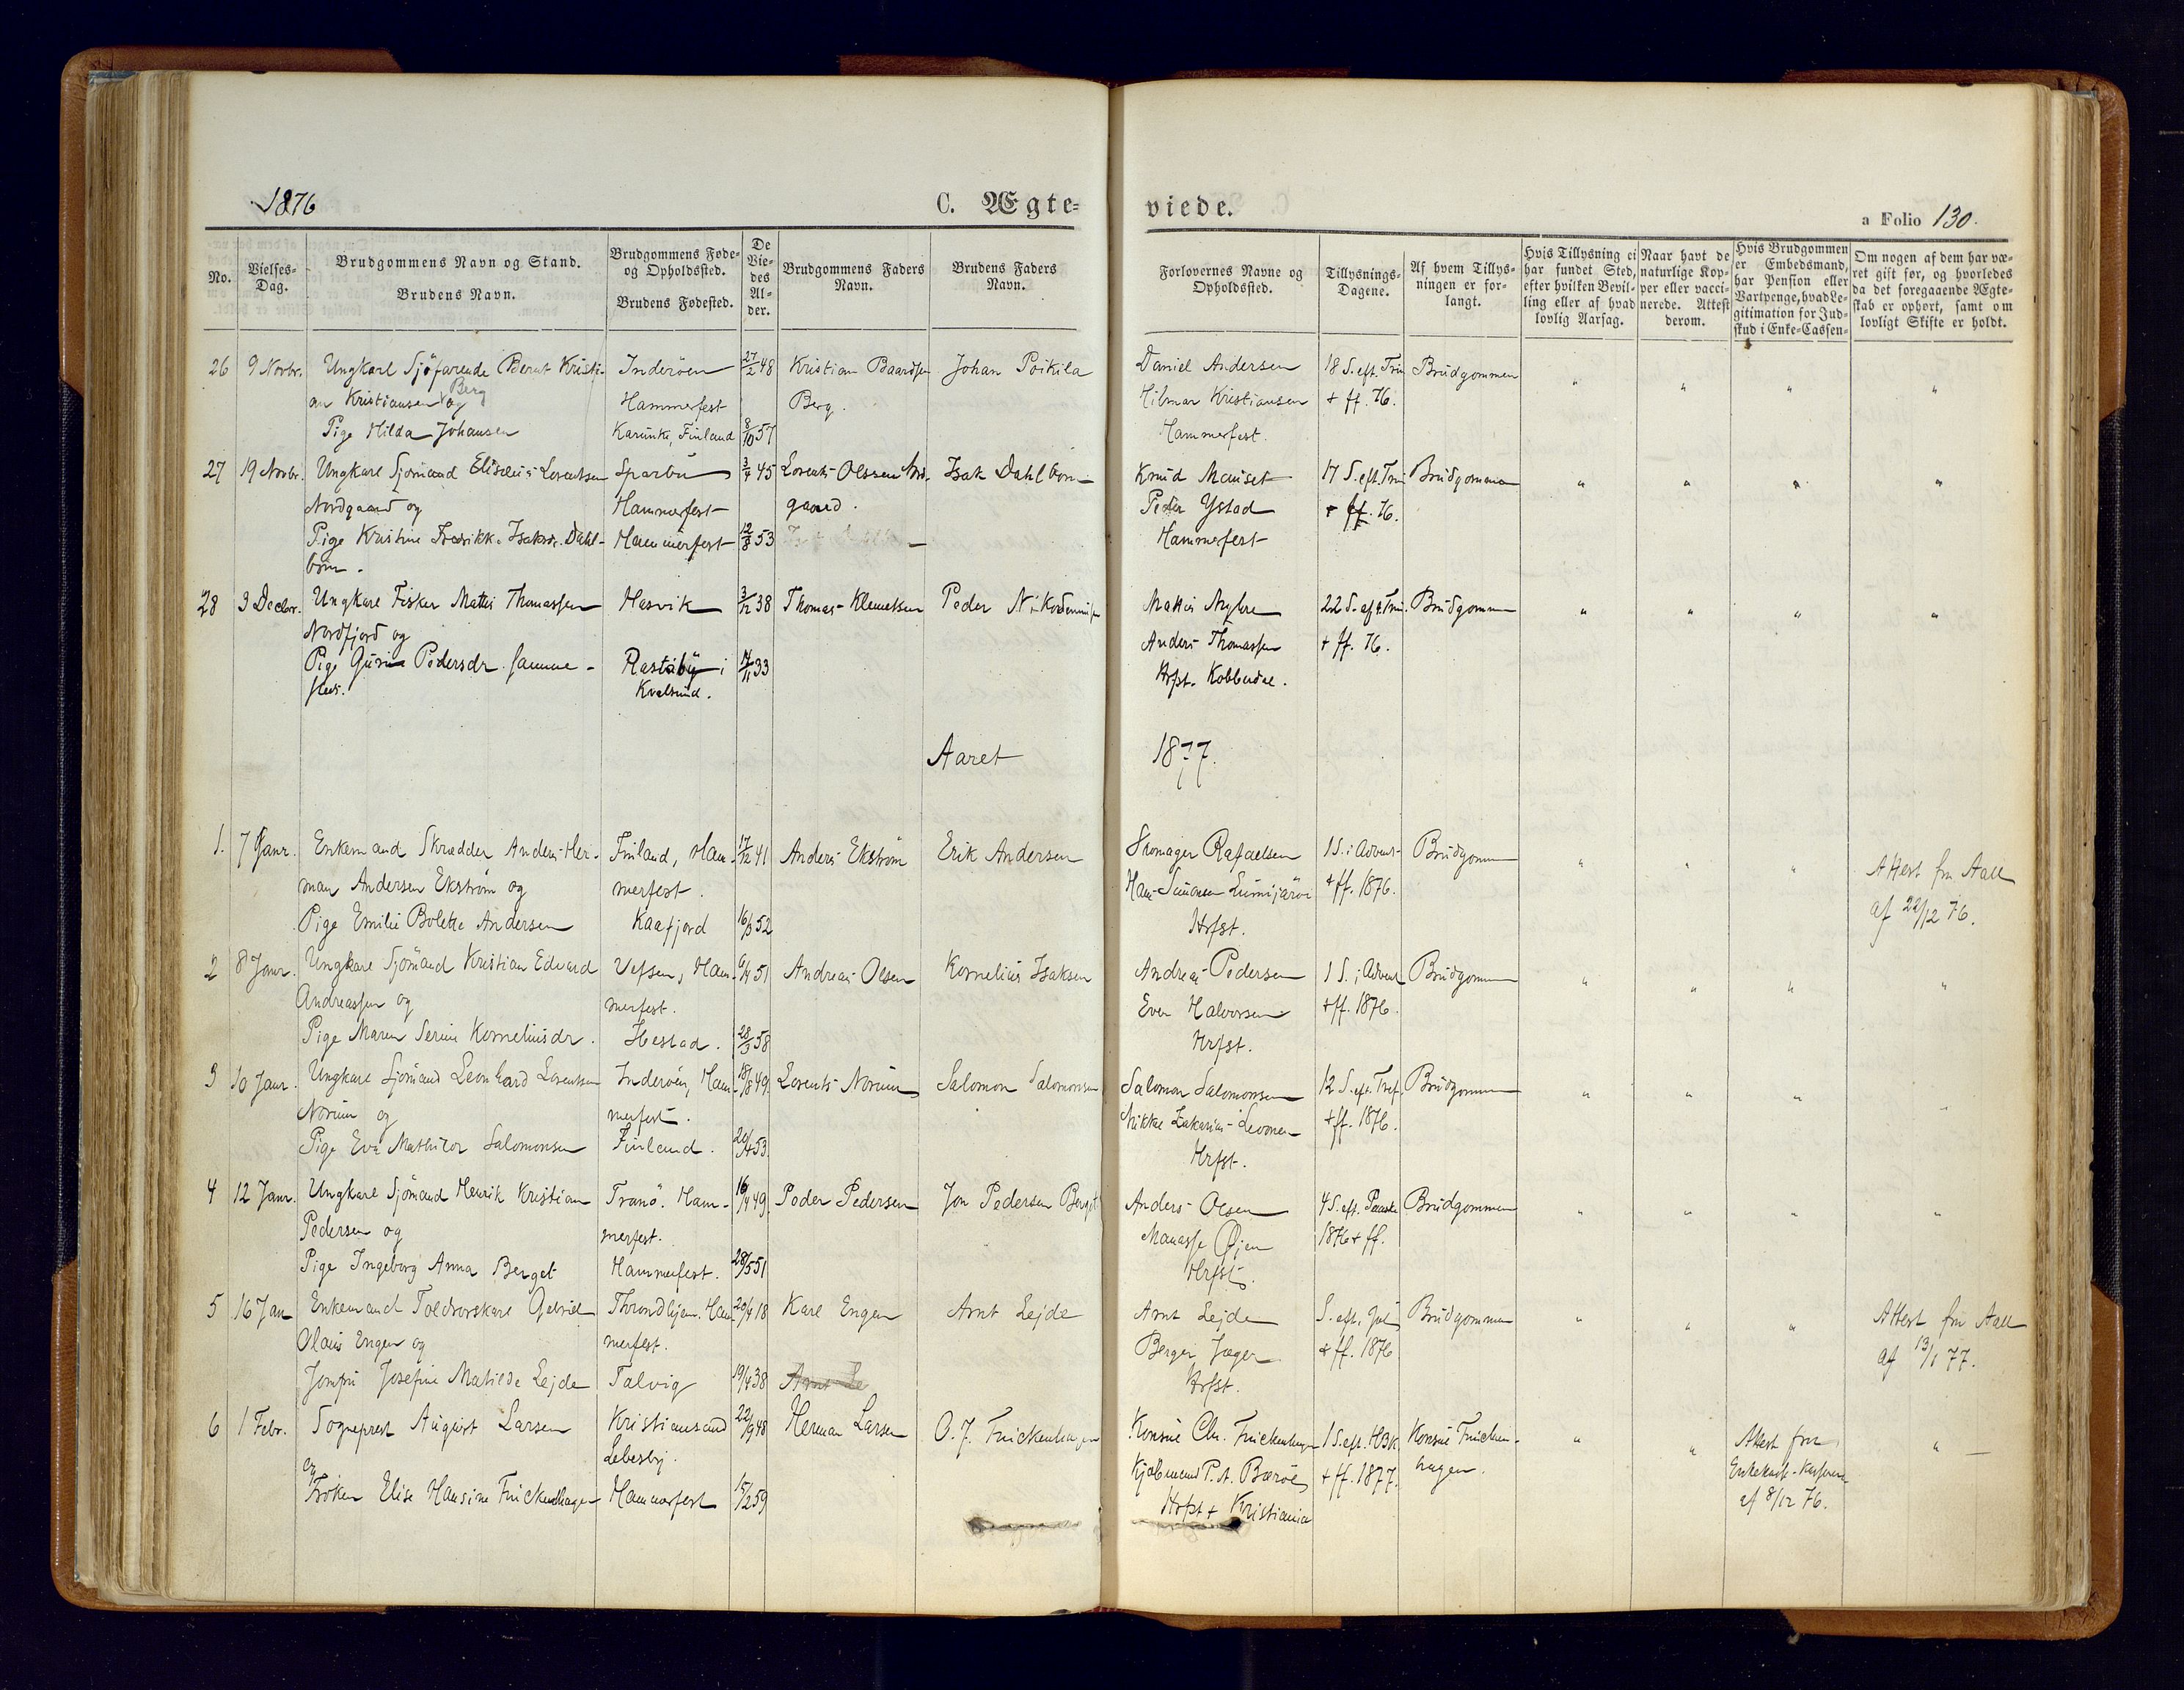 1876
C. Ægte=
viede.
a Folio 130.
No.
Vielses=
Dag.
Brudgommens Navn og Stand.
Brudens Navn.
Brudgommens Føde=
og Opholdssted.
Brudens Fødested.
De
Vie=
des
Al=
der.
Brudgommens Faders
Navn.
Brudens Faders
Navn.
Forlovernes Navne og
Opholdssted.
Tillysnings=
Dagene.
Af hvem Tillys=
ningen er for=
langt.
Hvis Tillysning ei
har fundet Sted,
efter hvilken Bevil=
ling eller af hvad
lovlig Aarsag.
Naar havt de
naturlige Kop=
per eller vacci=
nerede. Attest
derom.
Hvis Brudgommen
er Embedsmand,
har Pension eller
Vartpenge, hvad Le=
gitimation for Ind=
skud i Enke=Cassen=
Om nogen af dem har væ=
ret gift før, og hvorledes
da det foregaaende Ægte=
skab er ophørt, samt om
lovligt Skifte er holdt.
26 9 Novbr. Ungkarl Sjöfarende Bernt Kristi- Inderöen 27/2 48 Kristian Baardsen Johan Poikila Daniel Andersen 18 S. eft. Trin Brudgommen " " " "
an Kristiansen Berg og Hammerfest Berg. Hilmar Kristiansen + ff. 76.
Pige Hilda Johansen Karunki, Finland 8/10 57 Hammerfest.
27 19 Novbr. Ungkarl Sjömand Eliseus Lorentsen Sparbu 3/4 45 Lorents Olssen Nord- Isak Dahlbom Knud Mauset 17 S. eft. Trin Brudgommen " " " "
Nordgaard og Hammerfest gaard. Peder Ystad + ff. 76.
Pige Kristine Fredrikke Isaksdr. Dahl- Hammerfest 12/8 53 Hammerfest
bom.
28 3 Decbr. Ungkarl Fisker Mattis Thomassen Hasvik 3/12 38 Thomas Klemetsen Peder Nikodemus Mattis Myhre 22 S. eft. Trin. Brudgommen " " " "
Nordfjord og Anders Thomassen + ff. 76.
Pige Gurina Pedersdr. samme- Rastaby i 14/11 33 Hrfst. Kobberdal.
steds. Kvalsund.
Aaret 1877.
1. 7 Janr. Enkemand Skrædder Anders Her- Finland, Ham- 17/12 41 Anders Ekström Erik Andersen Skomager Rafaelsen 1 S. i Advent Brudgommen " " " Attest fra Aall
man Andersen Ekström og merfest. Hans Simonsen Lumijärvi + ff. 1876. af 22/12 76.
Pige Emilie Bolette Andersen Kaafjord 16/3 52 Hrfst.
2 8 Janr. Ungkarl Sjömand Kristian Edvard Vefsen, Ham- 6/4 51 Andreas Olsen Kornelius Isaksen Andreas Pedersen 1 S. i Advent Brudgommen " " " "
Andreassen og merfest. Even Halvorsen + ff. 1876.
Pige Maren Serine Korneliusdr. Hestad. 28/3 58 Hrfst.
3 10 Janr. Ungkarl Sjömand Leonhard Lorentsen Inderöen, Ham- 18/8 49. Lorents Norum Salomon Salomonsen Salomon Salomonsen 12 S. eft. Tref. Brudgommen " " " "
Norum og merfest. Mikkel Zakarias Levonen + ff. 1876.
Pige Eva Mathilde Salomonsen Finland. 20/4 53. Hrfst.
4 12 Janr. Ungkarl Sjömand Henrik Kristian Tranö. Ham- 16/4 49 Peder Pedersen Jon Pedersen Berget Anders Olsen 4 S. eft. Paaske Brudgommen " " " "
Pedersen og merfest. Manasse Öjen 1876 + ff.
Pige Ingeborg Anna Berget Hammerfest. 28/5 51 Hrfst.
5 16 Jan Enkemand Toldrorskarl Gabriel Throndhjem. Ham- 20/4 18 Karl Engen Arnt Lejde Arnt Lejde S. eft. Jul Brudgommen " " " Attest fra Aall
Olaus Engen og merfest. Berger Jæger + ff. 1876 af 13/1 77.
Jomfru Josefine Matilde Lejde Talvig 19/4 38 Arnt Le Hrfst.
6 1 Febr. Sogneprest August Larsen Kristiansund 22/9 48 Herman Larsen O. J. Finckenhagen Konsul Chr. Finckenhagen 1 S. eft. H3K Konsul Fincken- " " Attest fra "
og Lebesby. Kjöbmand P. A. Baröe + ff. 1877. hagen. Enkekasse-Kasserer
Fröken Elise Hansine Finckenhagen Hammerfest 15/2 59 Hrfst + Kristiania af 8/12 76.